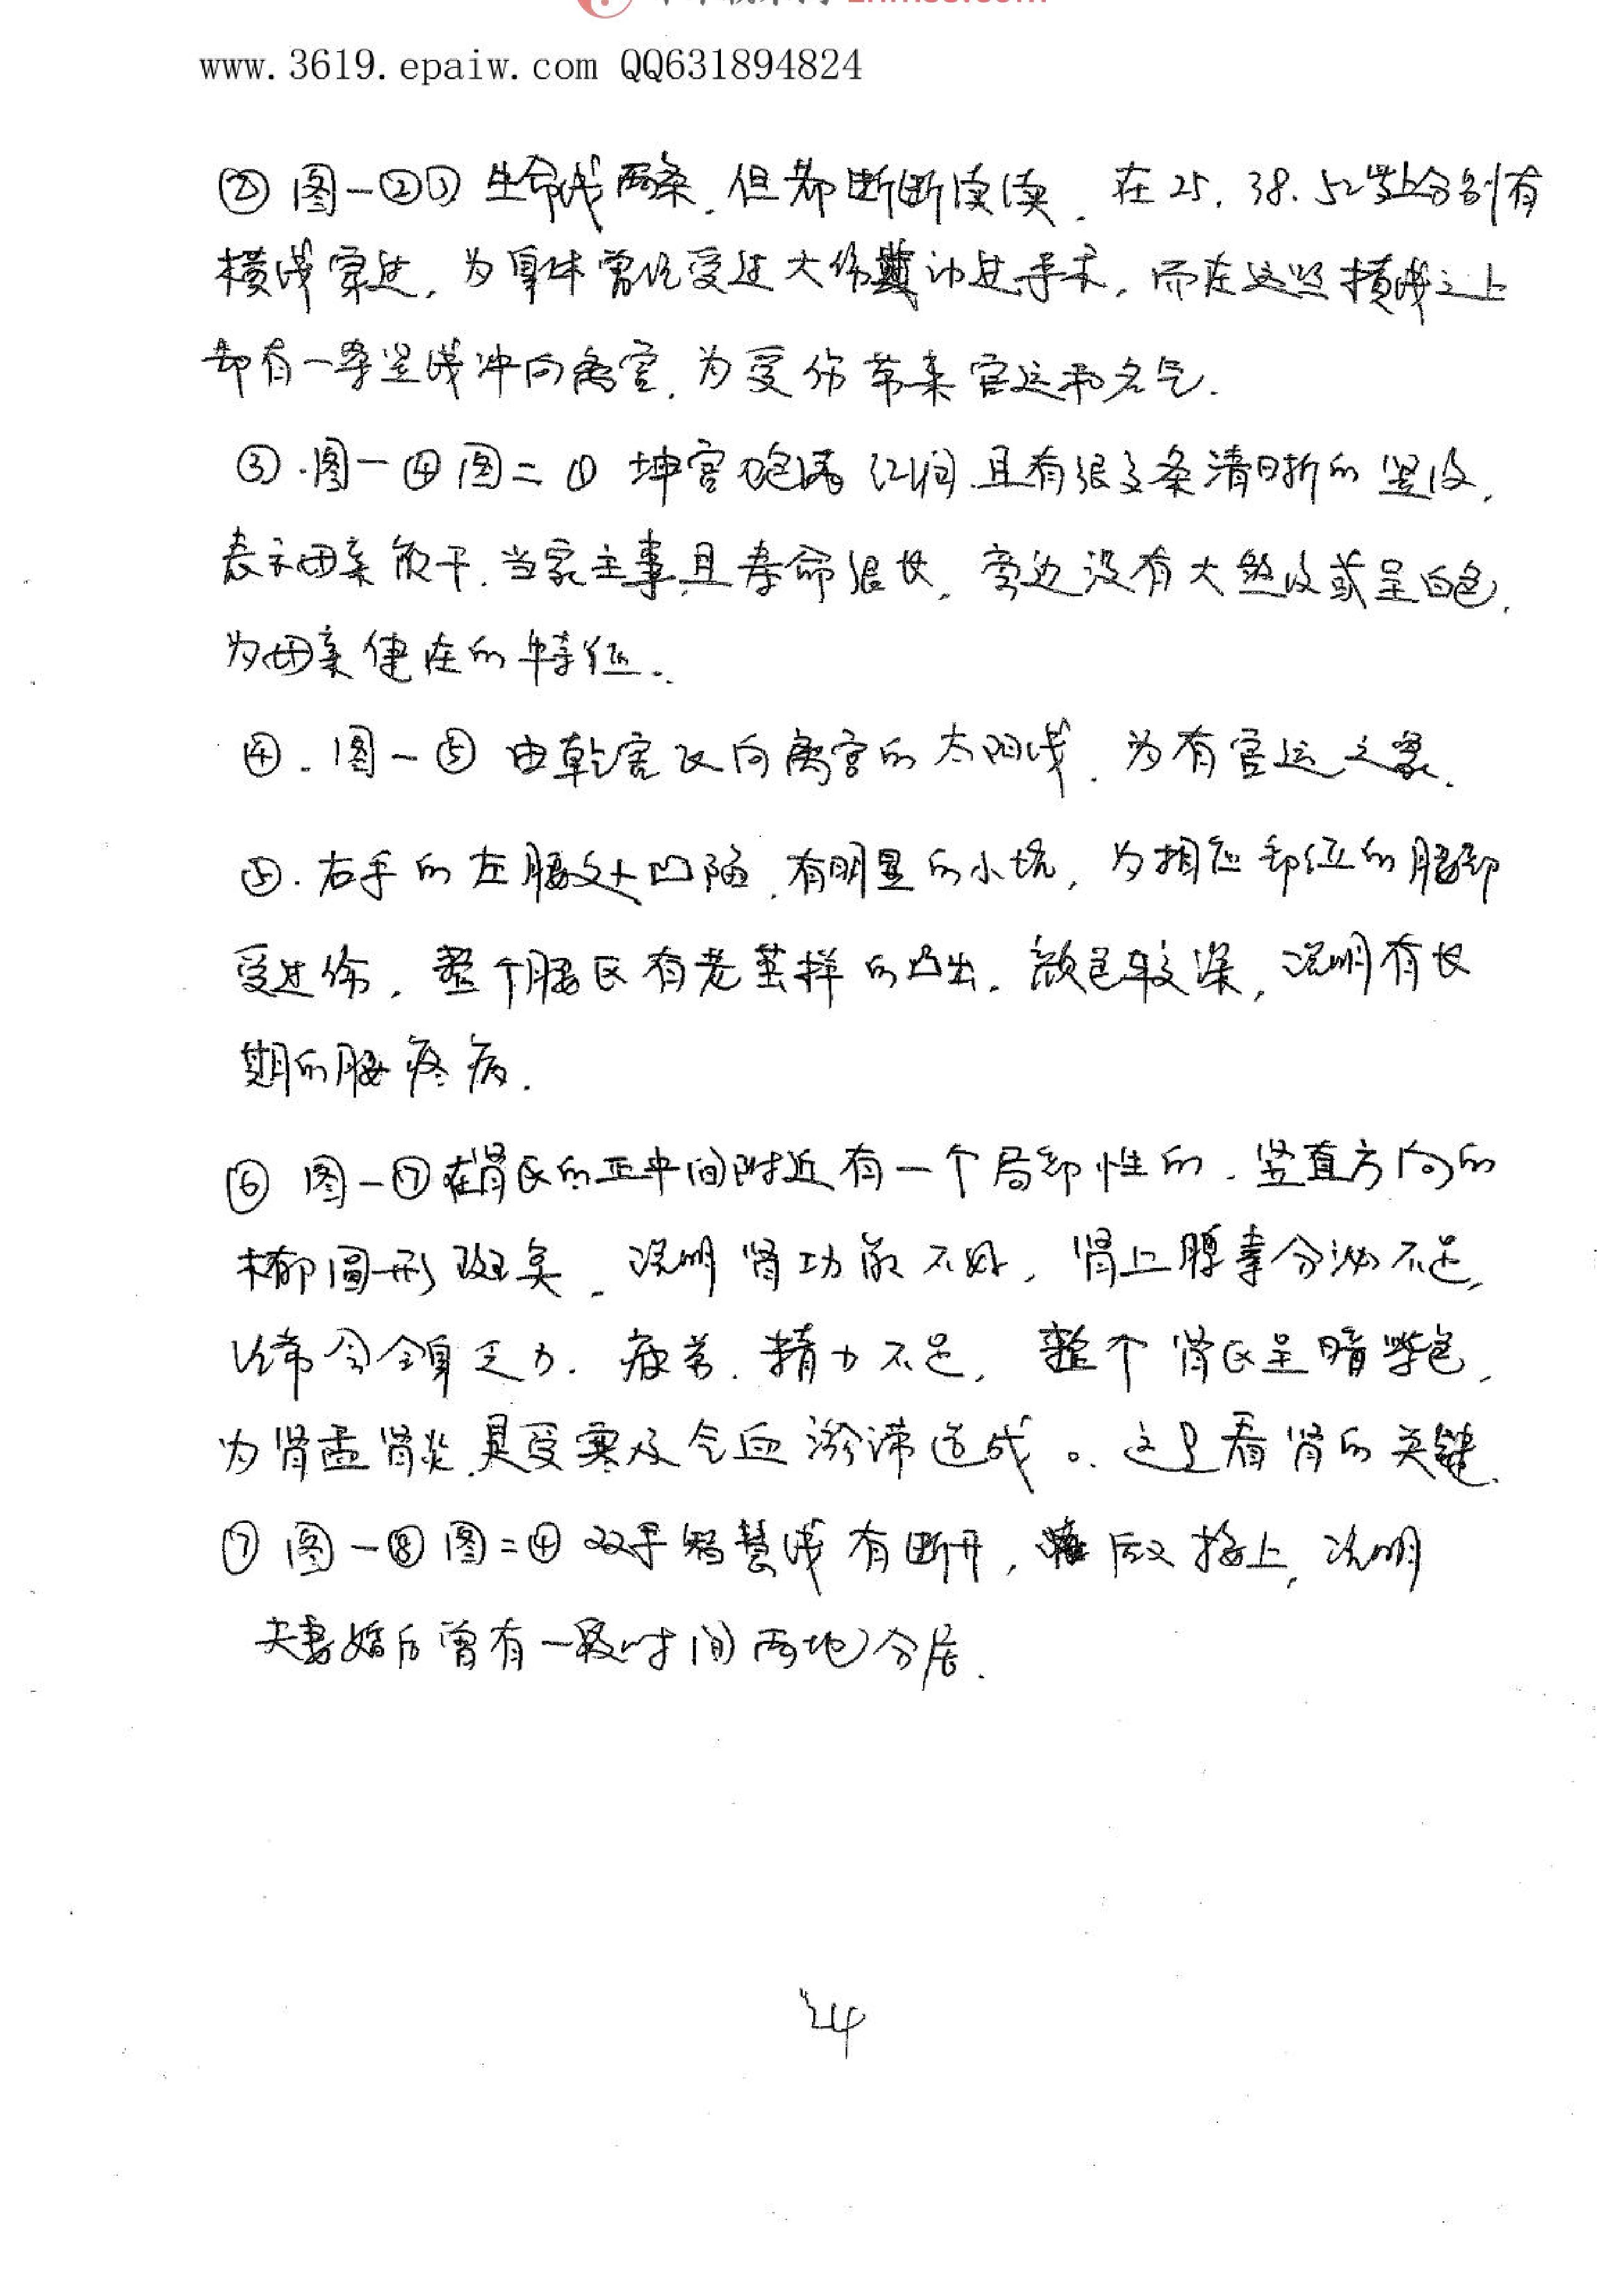 www.3619.epaiw.com QQ631894824
② 图一②① 生命线两条.但都断断续续.在25.38.52岁上分别有
横线穿过,为身体曾经受过大伤或动过手术,而在这些横线之上
却有一条竖线冲向离宫.为受伤带来官运和名气.
③.图一④图二① 坤宫饱满红润.且有很多条清晰的竖纹,
表示母亲能干.当家主事,且寿命很长,旁边没有大煞纹或呈白色,
为母亲健在的特征.
④.图一⑤ 由乾宫 向离宫的太阳线.为有官运之象.
⑤.右手的左腰 凹陷,有明显的小坑,为相应部位的腰部
受过伤,整个腰区有老茧样的凸出.颜色较深,说明有长
期的腰疼病.
⑥ 图一⑦在肾区的正中间附近有一个局部性的.竖直方向的
椭圆形斑点.说明肾功能不好,肾上腺素分泌不足,
经常会全身乏力.疲劳.精力不足,整个肾区呈暗紫色,
为肾盂肾炎,是受寒及气血淤滞造成。这是看肾的关键.
⑦ 图一⑧图二④ 双手智慧线有断开, 后又接上,说明
夫妻婚后曾有一段时间两地分居.
24